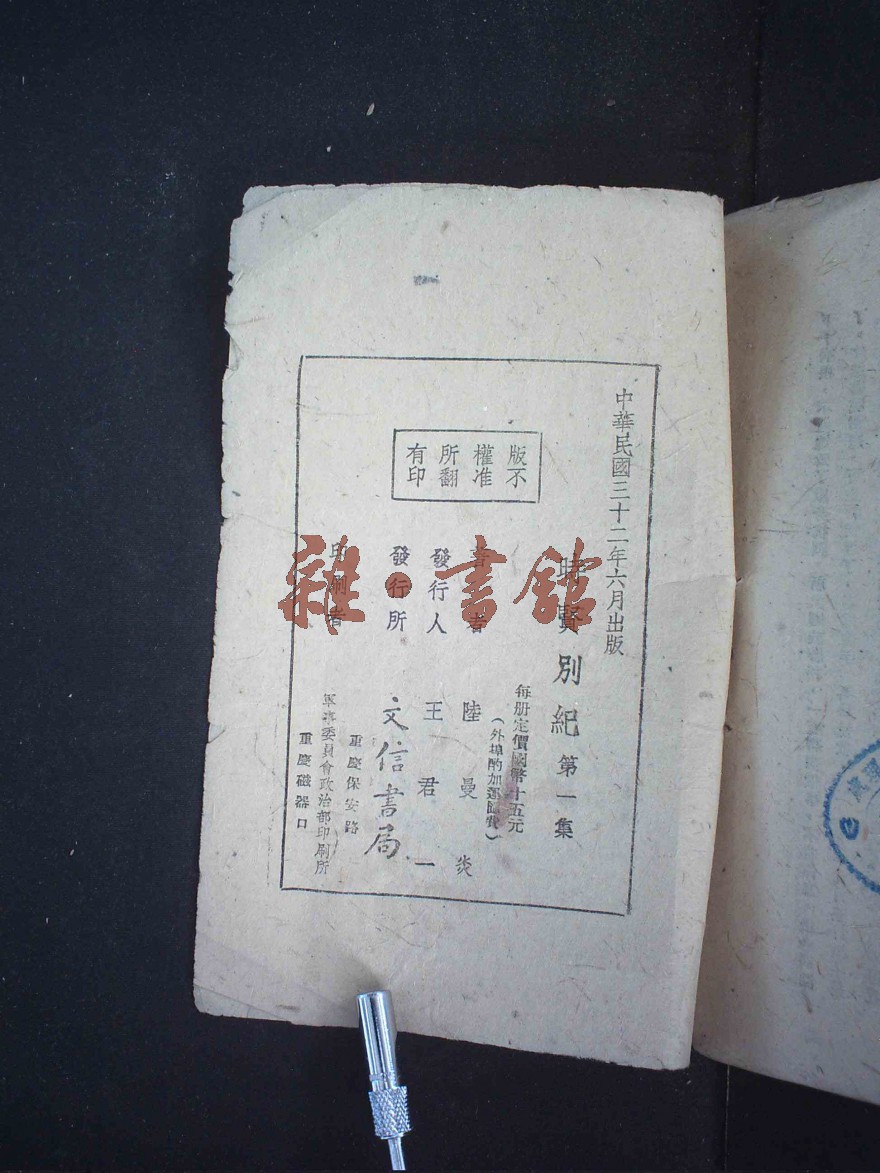 中華民國三十二年六月出版
時賢別紀 第一集
每册定價國幣十五元
（外埠酌加運匯費）
版權所有
不准翻印
著者 陸曼炎
發行人 王君一
發行所 文信書局
重慶保安路
印刷者 軍事委員會政治部印刷所
重慶磁器口
雜·書館